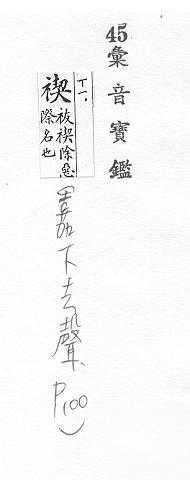 45彙音寶鑑
ㄒㄧˋ
禊 祓禊除惡
際名也
(嘉下去聲、P100)